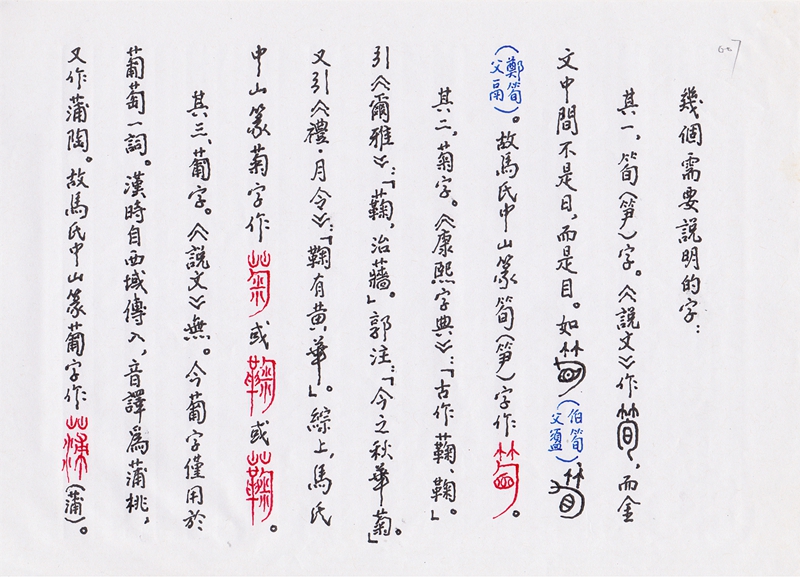 幾個需要說明的字：
其一，筍（笋）字。《說文》作筍，而金
文中間不是日，而是目。如（伯筍父盨）
（鄭筍父鬲）。故馬氏中山篆筍（笋）字作。
其二，菊字。《康熙字典》：「古作蘜、鞠。」
引《爾雅》：「蘜，治蘠。」郭注：「今之秋華菊。」
又引《禮·月令》：「鞠有黄華」。綜上，馬氏
中山篆菊字作菊或鞠或蘜。
其三，葡字。《說文》無。今葡字僅用於
葡萄一詞。漢時自西域傳入，音譯爲蒲桃，
又作蒲陶。故馬氏中山篆葡字作（蒲）。